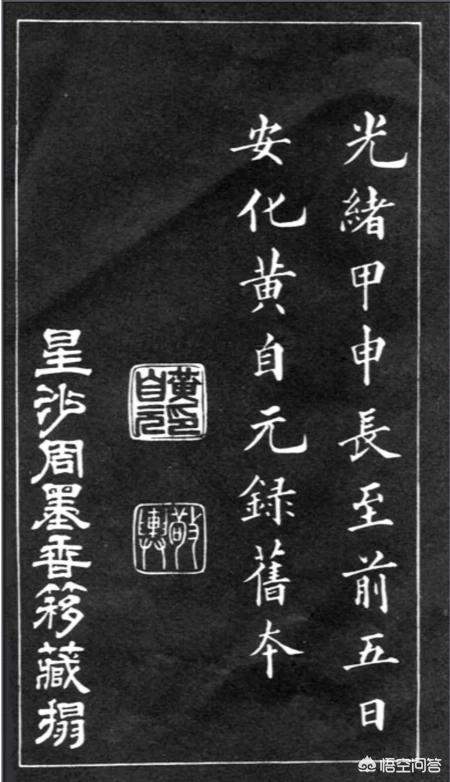 光緒甲申長至前五日
安化黃自元録舊本
黃自元印
敬輿
星沙周墨香簃藏搨
悟空问答